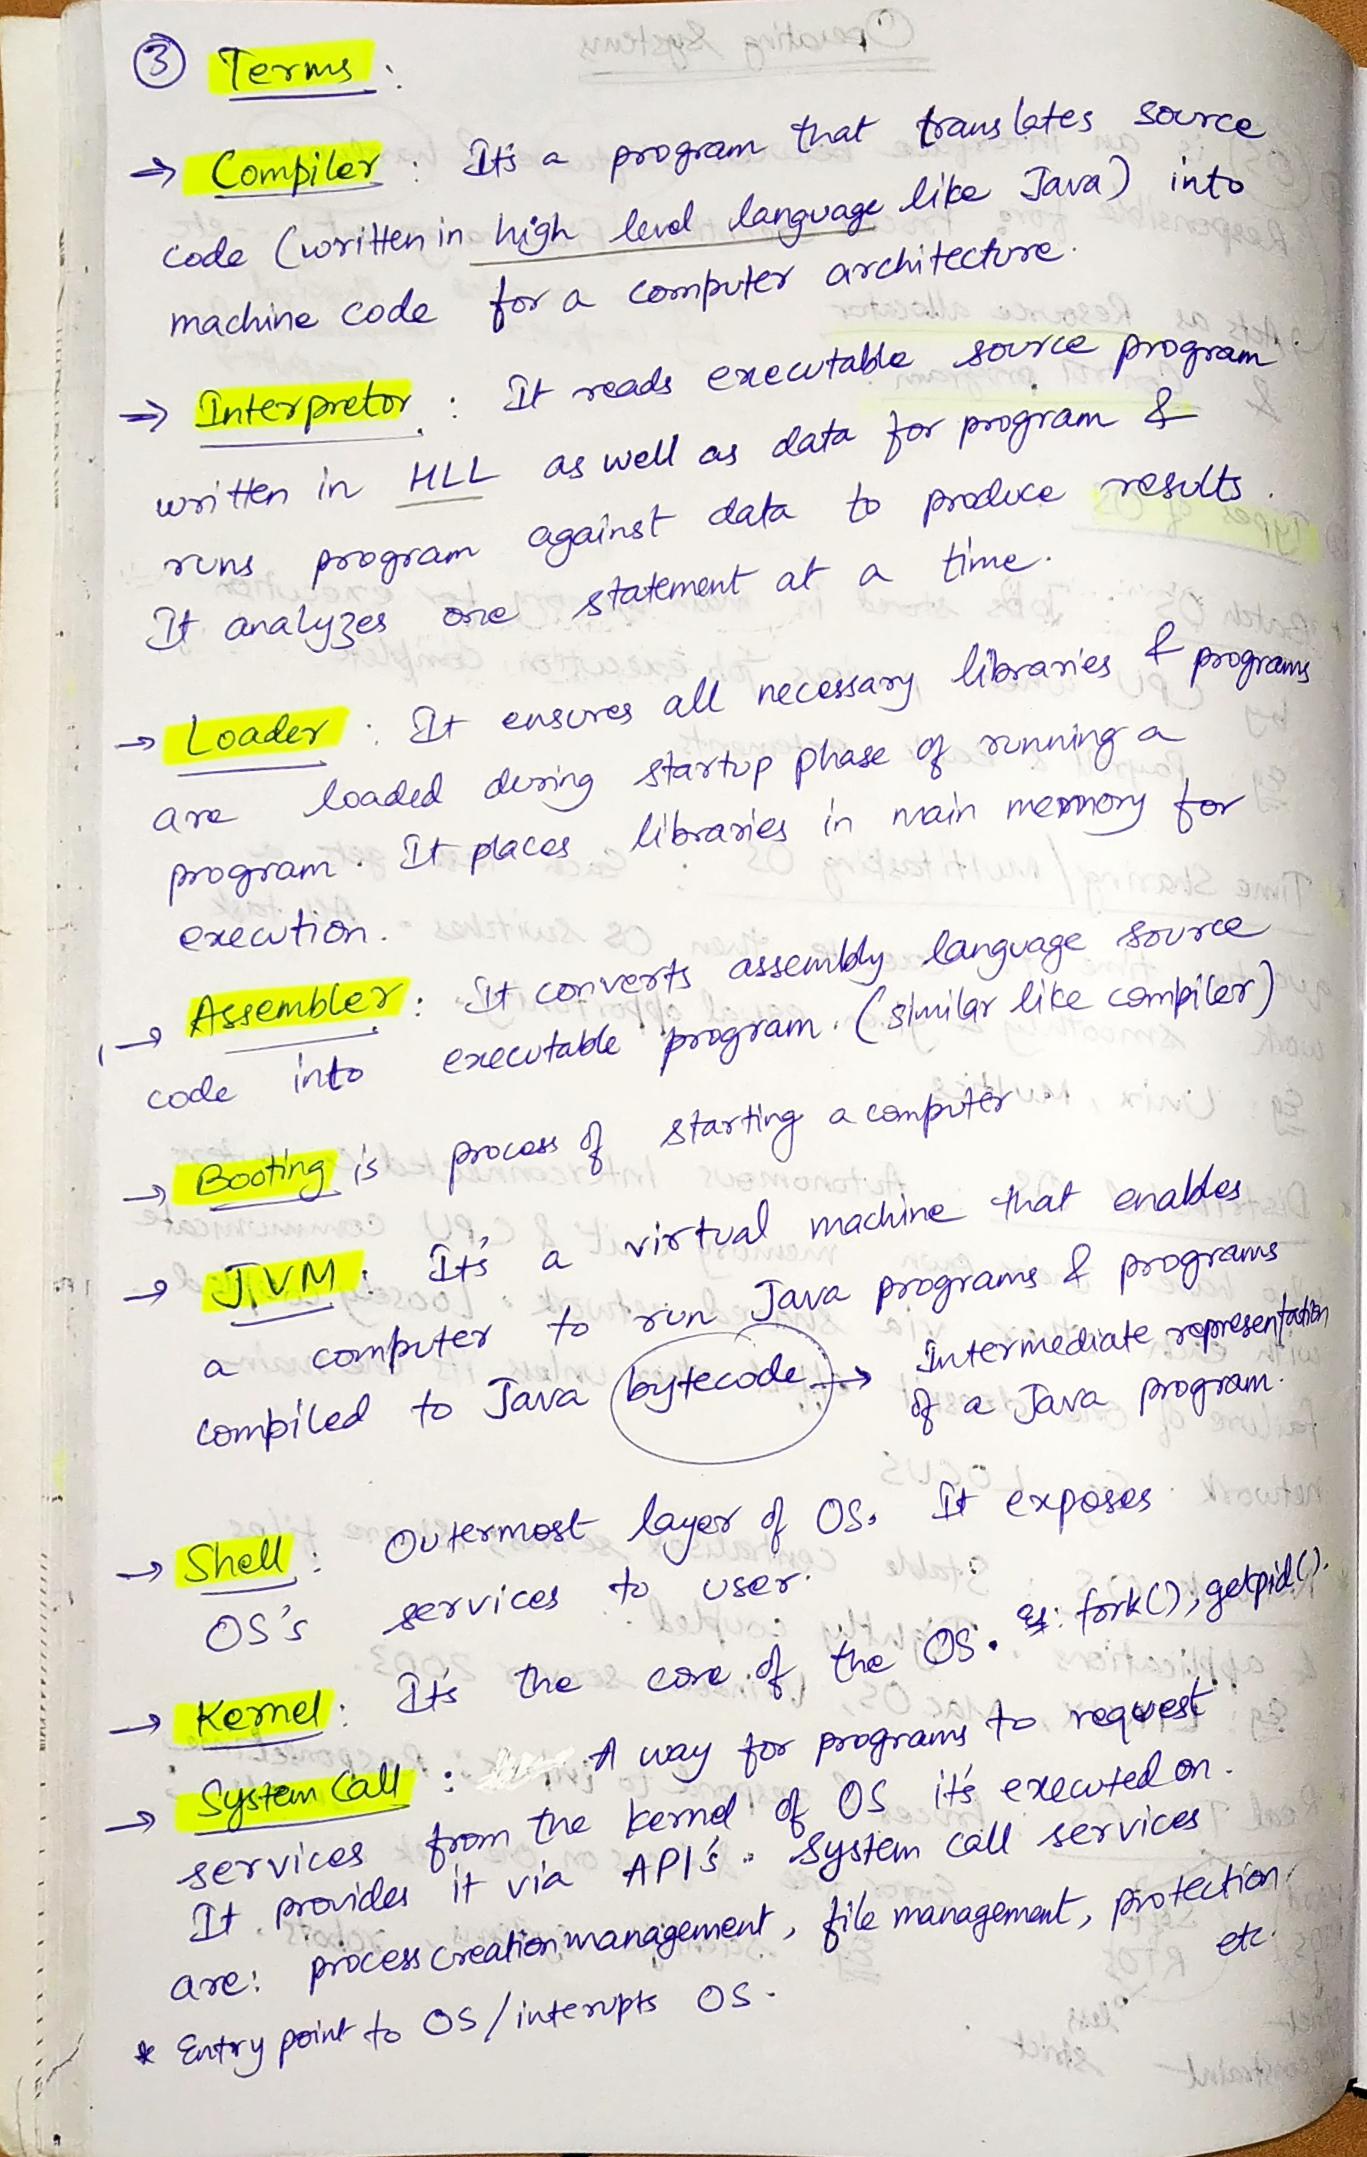 ③ Terms :
→ Compiler : It's a program that translates source
code (written in high level language like Java) into
machine code for a computer architecture.
→ Interpretor : It reads executable source program
written in HLL as well as data for program &
runs program against data to produce results.
It analyzes one statement at a time.
→ Loader : It ensures all necessary libraries & programs
are loaded during startup phase of running a
program. It places libraries in main memory for
execution.
→ Assembler : It converts assembly language source
code into executable program. (similar like compiler)
→ Booting is process of starting a computer
→ JVM : It's a virtual machine that enables
a computer to run Java programs & programs
compiled to Java bytecode → Intermediate representation
of a Java program.
→ Shell : Outermost layer of OS. It exposes
OS's services to user.
→ Kernel : It's the core of the OS. eg: fork(), getpid().
→ System Call : A way for programs to request
services from the kernel of OS it's executed on.
It provides it via API's. System call services
are: process creation management, file management, protection
etc.
* Entry point to OS / interupts OS.